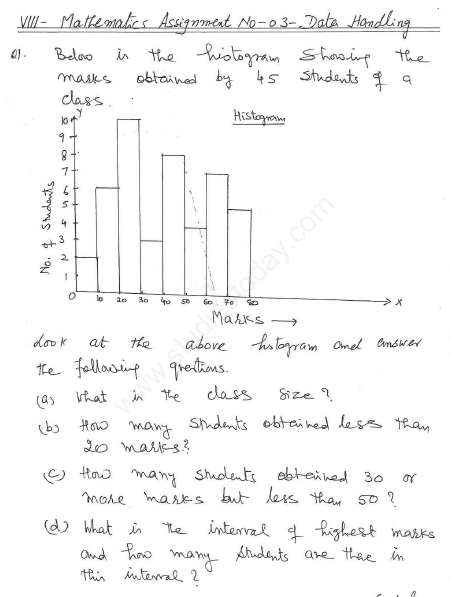 VIII- Mathematics Assignment No-03- Data Handling
Q1. Below is the histogram showing the
marks obtained by 45 students of a
class.
Histogram
Y
10
9
8
7
6
5
4
3
2
1
0
No. of Students
10 20 30 40 50 60 70 80
X
Marks →
Look at the above histogram and answer
the following questions.
(a) What is the class size?
(b) How many students obtained less than
20 marks?
(c) How many students obtained 30 or
more marks but less than 50?
(d) What is the interval of highest marks
and how many students are there in
this interval?
www.studiestoday.com